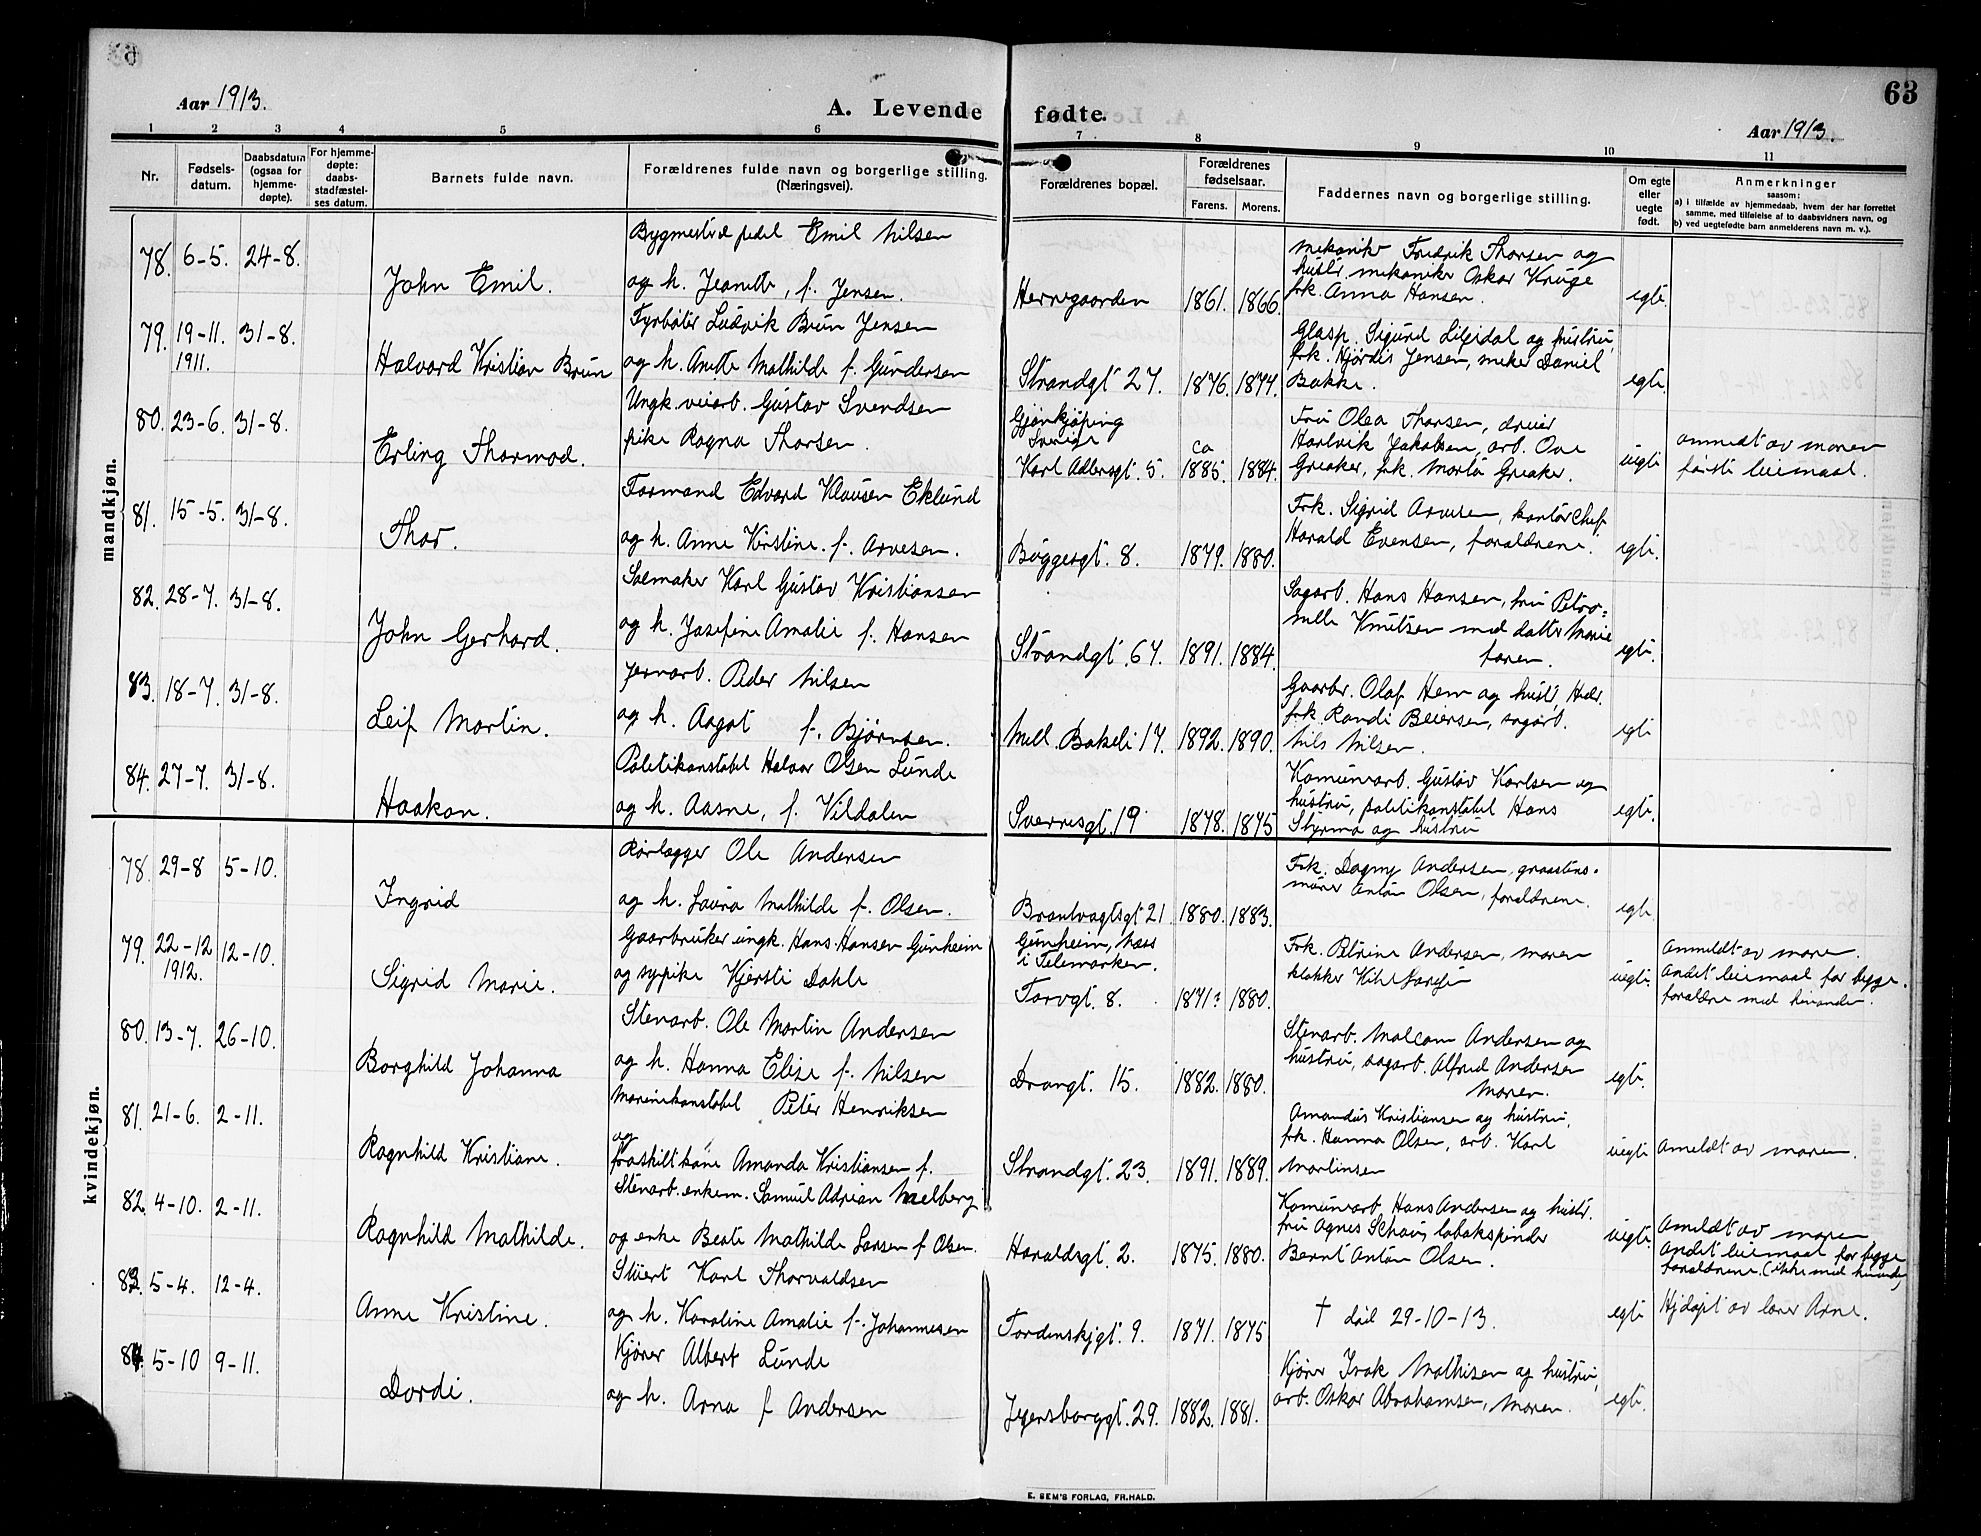 63
Aar 1913.
A. Levende fødte.
Aar 1913.
1 2 3 4 5 6 7 8 9 10 11
Nr.
Fødsels-
datum.
Daabsdatum
(ogsaa for
hjemme-
døpte).
For hjemme-
døpte:
daabs-
stadfæstel-
ses datum.
Barnets fulde navn.
Forældrenes fulde navn og borgerlige stilling.
(Næringsvei).
Forældrenes bopæl.
Forældrenes
fødselsaar.
Farens. Morens.
Faddernes navn og borgerlige stilling.
Om egte
eller
uegte
født.
Anmerkninger
saasom:
a) i tilfælde av hjemmedaab, hvem der har forrettet
samme, med tilføielse af to daabsvidners navn, og
b) ved uegtefødte barn anmelderens navn m. v.).
mandkjøn.
78. 6-5. 24-8. John Emil.
Emil Nilsen
og h. Jeanette, f. Jensen.
Herregaarden 1861. 1866.
mekaniker Fredrik Thorsen og
hustr. mekaniker Oskar Kruge
frk. Anna Hansen.
egte.
79. 19-11. 1911. 31-8. Halvard Kristian Brun
Fyrbøter Ludvik Brun Jensen
og h. Anette Mathilde f. Gundersen
Strandgt 27. 1876. 1874.
Glasp. Sigurd Lileidal og hustru,
frk. Hjørdis Jensen, mek. Daniel
Bakke.
egte.
80. 23-6. 31-8. Erling Thormod.
Ungk. veiarb. Gustav Svendsen
pike Ragna Thorsen.
Gjønkjøping
Sverige
Karl Adlersgt. 5. ca 1885. 1884.
Fru Olea Thorsen, dreier
Hartvik Jakobsen, arb. Ove
Greaker, frk. Marta Greaker.
uegte
anmeldt av moren
første leiemaal.
81. 15-5. 31-8. Thor.
Formand Edvard Klausen Eklund
og h. Anne Kirstine. f. Arvesen.
Bøggersgt. 8. 1879. 1880.
Frk. Sigrid Arvesen, kontorchef
Harald Evensen, forældrene.
egte.
82. 28-7. 31-8. John Gerhard.
Salmaker Karl Gustav Kristiansen
og h. Josefine Amalie f. Hansen
Strandgt. 67. 1891. 1884.
Sagarb. Hans Hansen, fru Petro=
nelle Knutsen med datter Marie
faren.
egte.
83. 18-7. 31-8. Leif Martin.
Jernarb. Peder Nilsen
og h. Aagot f. Bjørnsen.
Mell. Bakeli 17. 1892. 1890.
Gaarbr. Olaf Hem og hustr,
frk. Randi Beiersen, sagarb.
Nils Nilsen.
egte
84. 27-7. 31-8. Haakon.
Politikonstabel Halvor Olsen Lunde
og h. Aasne, f. Vildalen
Sverresgt. 19 1878. 1875
Komunearb. Gustav Karlsen og
hustru, politikonstabel Hans
Styrmo og hustru
egte.
kvindekjøn.
78. 29-8 5-10. Ingrid
Rørlægger Ole Andersen
og h. Laura Mathilde f. Olsen.
Brantvagtsgt 21 1880. 1883.
Frk. Dagny Andersen, graastens-
murer Anton Olsen, forældrene.
egte.
79. 22-12 1912. 12-10. Sigrid Marie.
Gaarbruker ungk. Hans Hansen Gunheim
og sypike Kjersti Dahle
Gunheim, Næss
i Telemarken.
Torvgt. 8. 1871? 1880.
Frk. Petrine Andersen, moren
klokker
uegte.
Anmeldt av moren.
Andet leiemaal for begge
forældre med hinanden.
80. 13-7. 26-10. Borghild Johanna
Stenarb. Ole Martin Andersen
og h. Hanna Elise f. Nilsen
Drangt. 15. 1882. 1880.
Stenarb. Malcom Andersen og
hustru, sagarb. Alfred Andersen
Moren.
egte.
81. 21-6. 2-11. Ragnhild Kristiane.
Marinekonstabel Peter Henriksen
og
fraskilt kone Amanda Kristiansen f.
Strandgt. 23. 1891. 1889.
Amandus Kristiansen og hustru,
frk. Hanna Olsen, arb. Karl
Martinsen
uegte
Anmeldt av moren.
82. 4-10. 2-11. Ragnhild Mathilde.
Stenarb. enkem. Samuel Adrian Melberg
og enke Beate Mathilde Larsen f Olsen.
Haraldsgt. 2. 1875. 1880.
Komunearb. Hans Andersen og hustr.
fru Agnes Schau, tobakspinder
Bernt Anton Olsen.
uegte.
Anmeldt av moren
Andet leiemaal for begge
forældrene. (ikke med hinanden)
83. 5-4. 12-4. Anne Kristine.
Stuert Karl Thorvaldsen
og h. Karoline Amalie f. Johannesen
Tordenskjgt. 9. 1871. 1875
† død 29-10-13.
egte
Hjdøpt av lærer Arne.
84. 5-10 9-11. Dordi.
Kjører Albert Lunde
og h. Arna f Andersen
Jegersborggt. 29. 1882. 1881.
Kjører Isak Mathisen og hustru,
arb. Oskar Abrahamsen, moren.
egte.
E. SEM'S FORLAG, FR.HALD.